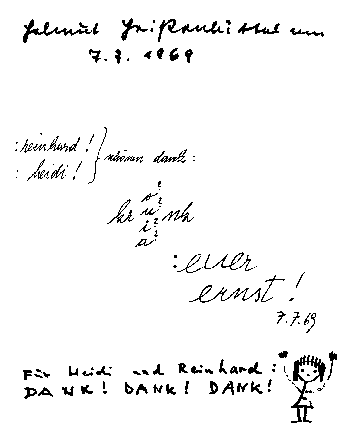 Helmut Heißenbüttel am
7.7.1969
:reinhard!
:heidi! } dank:
o?
kr u? nk
i?
a?
:euer
ernst!
7.7.69
Für Heidi und Reinhard:
DANK! DANK! DANK!